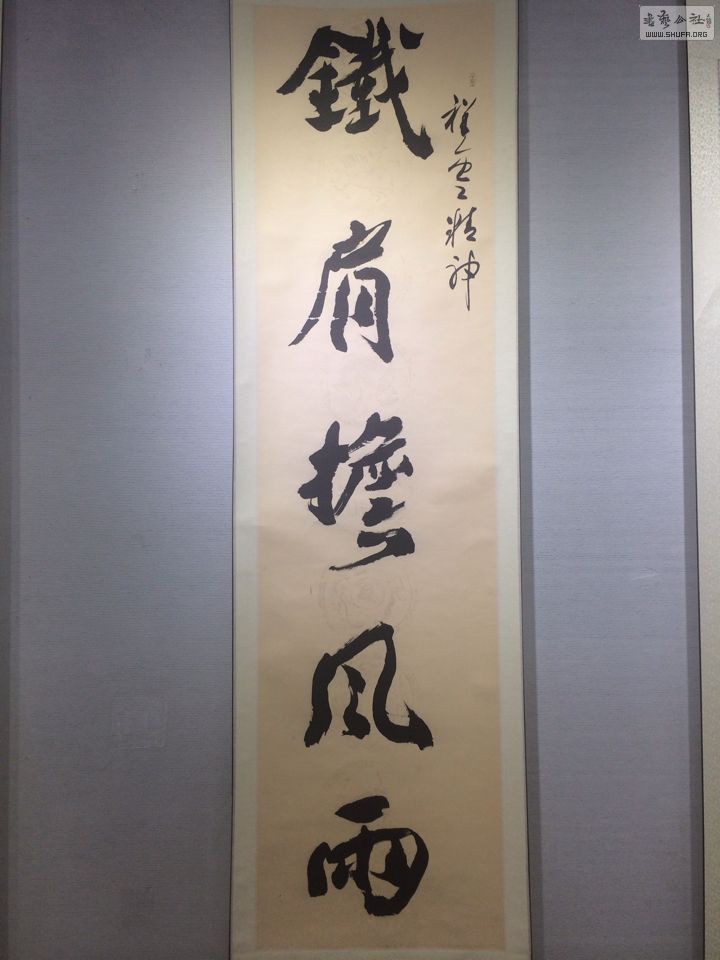 鐵肩擔風雨
祥雲精神
書藝公社
WWW.SHUFA.ORG